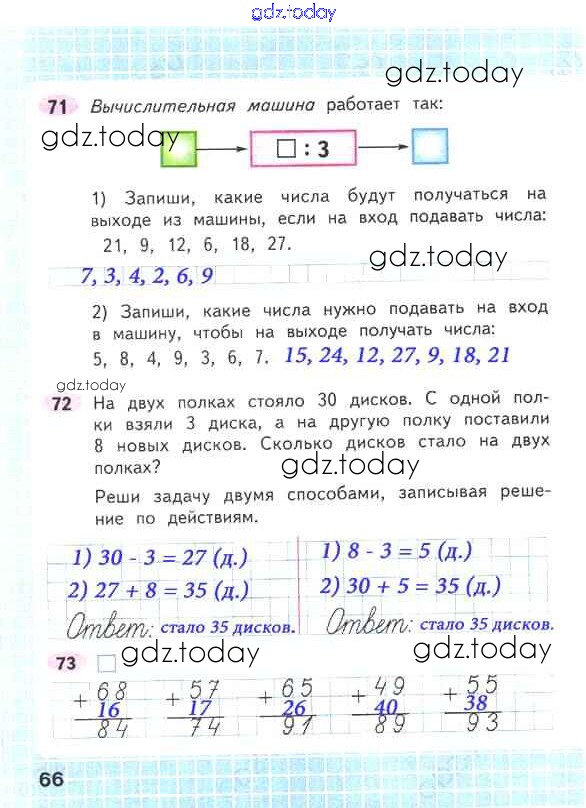 gdz.today
gdz.today
71 Вычислительная машина работает так:
gdz.today
□ : 3
1) Запиши, какие числа будут получаться на
выходе из машины, если на вход подавать числа:
21, 9, 12, 6, 18, 27.
gdz.today
7, 3, 4, 2, 6, 9
2) Запиши, какие числа нужно подавать на вход
в машину, чтобы на выходе получать числа:
5, 8, 4, 9, 3, 6, 7. 15, 24, 12, 27, 9, 18, 21
gdz.today
72 На двух полках стояло 30 дисков. С одной пол-
ки взяли 3 диска, а на другую полку поставили
8 новых дисков. Сколько дисков стало на двух
полках?
gdz.today
Реши задачу двумя способами, записывая реше-
ние по действиям.
1) 30 - 3 = 27 (д.) 1) 8 - 3 = 5 (д.)
2) 27 + 8 = 35 (д.) 2) 30 + 5 = 35 (д.)
Ответ: стало 35 дисков. Ответ: стало 35 дисков.
gdz.today gdz.today
73 □
+ 68 + 57 + 65 + 49 + 55
16 17 26 40 38
84 74 91 89 93
66